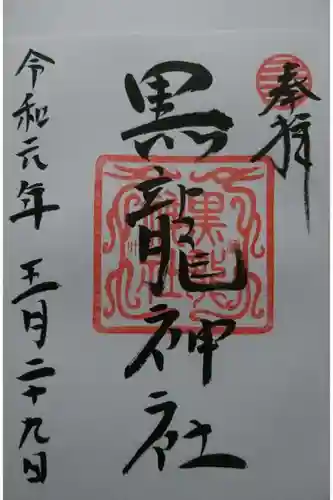 奉拝
黒龍神社
令和元年 五月二十九日